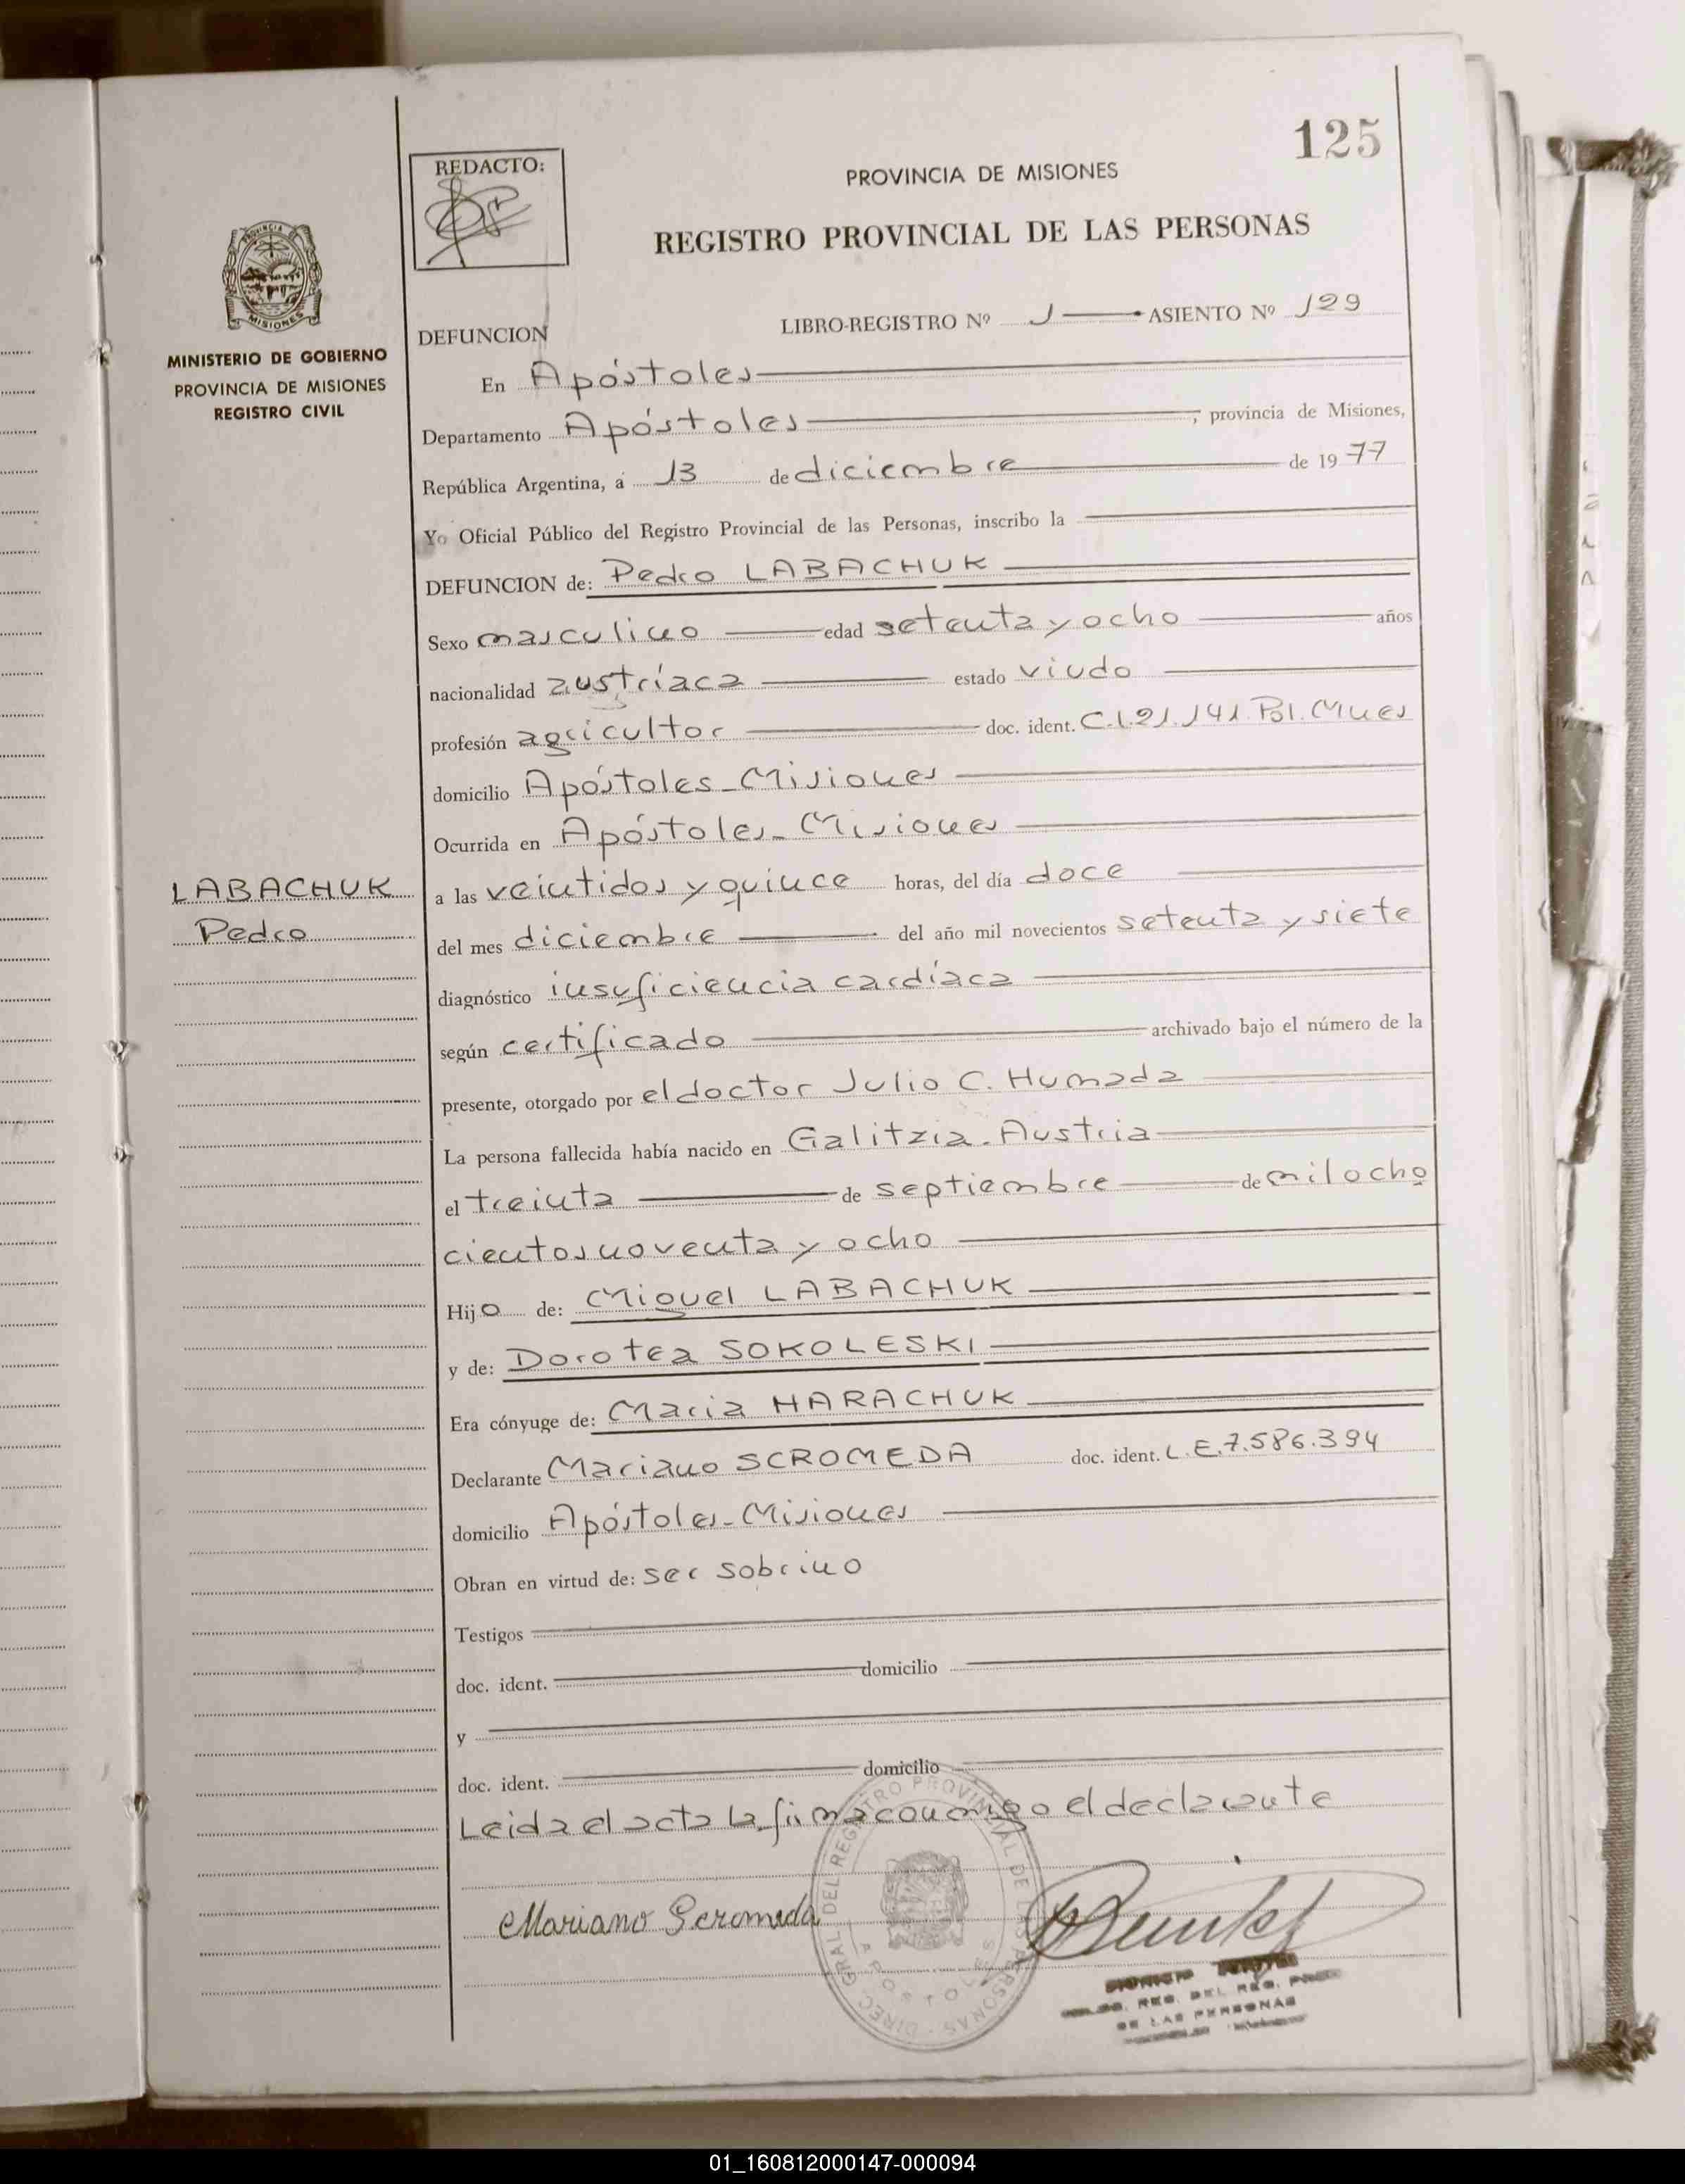 125
REDACTO:
PROVINCIA DE MISIONES
REGISTRO PROVINCIAL DE LAS PERSONAS
PROVINCIA DE
MISIONES
MINISTERIO DE GOBIERNO
PROVINCIA DE MISIONES
REGISTRO CIVIL
DEFUNCION
LIBRO-REGISTRO Nº 1 ASIENTO Nº 129
En Apóstoles
Departamento Apóstoles, provincia de Misiones,
República Argentina, á 13 de diciembre de 1977
Yo Oficial Público del Registro Provincial de las Personas, inscribo la
DEFUNCION de: Pedro LABACHUK
Sexo masculino edad setenta y ocho años
nacionalidad austríaca estado viudo
profesión agricultor doc. ident. C.I.21.141.Pol.Mnes
domicilio Apóstoles-Misiones
Ocurrida en Apóstoles-Misiones
LABACHUK
Pedro
a las veintidos y quince horas, del día doce
del mes diciembre del año mil novecientos setenta y siete
diagnóstico insuficiencia cardíaca
según certificado archivado bajo el número de la
presente, otorgado por el doctor Julio C. Humada
La persona fallecida había nacido en Galitzia-Austria
el treinta de septiembre de mil ocho
cientos noventa y ocho
Hijo de: Miguel LABACHUK
y de: Dorotea SOKOLESKI
Era cónyuge de: Maria HARACHUK
Declarante Mariano SCROMEDA doc. ident. L.E.7.586.394
domicilio Apóstoles-Misiones
Obran en virtud de: ser sobrino
Testigos
doc. ident. domicilio
y
doc. ident. domicilio
Leida el acta la firma conmigo el declarante
Mariano Scromeda
DIREC. GRAL. DEL REGISTRO PROVINCIAL DE LAS PERSONAS
APOSTOLES
REG. DEL REG. PROV.
DE LAS PERSONAS
01_160812000147-000094